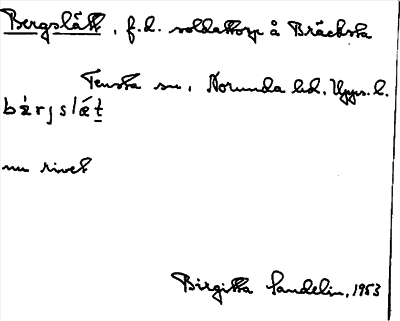 Bergslätt, f.d. soldattorp å Bräcksta
Tensta sn, Norunda hd, Upps. l.
bæ̀rjslǽt
nu rivet
Birgitta Sandelin, 1953